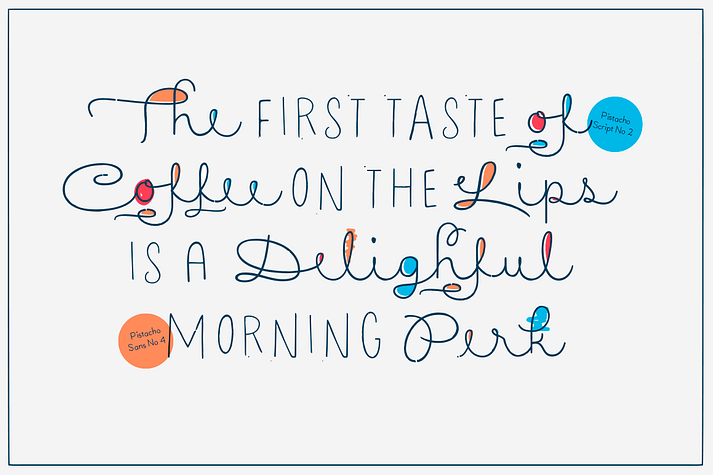 The FIRST TASTE of
Pistacho
Script No 2
Coffee ON THE Lips
IS A Delighful
Pistacho
Sans No 4
MORNING Perk